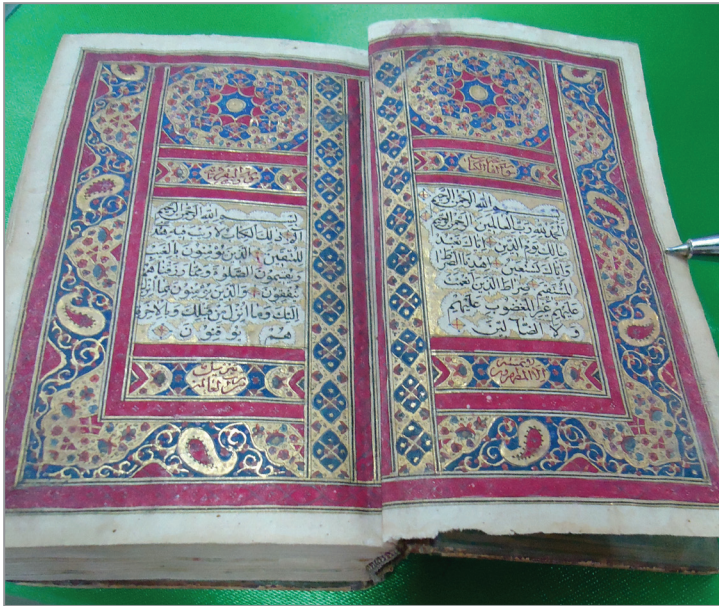 بسم الله الرحمن الرحيم
الحمد لله رب العالمين الرحمن الرحيم
مالك يوم الدين اياك نعبد
واياك نستعين اهدنا الصراط ا
لمستقيم صراط الذين انعمت
عليهم غير المغضوب عليهم
ولا الضالين
لا يمسه
الا المطهرون
سورة البقرة
بسم الله الرحمن الرحيم
الم ذلك الكتاب لا ريب فيه هدى
للمتقين الذين يؤمنون بالغيب
ويقيمون الصلوة ومما رزقناهم
ينفقون والذين يؤمنون بما انزل
اليك وما انزل من قبلك وبالاخرة
هم يوقنون
تنزيل من
رب العالمين